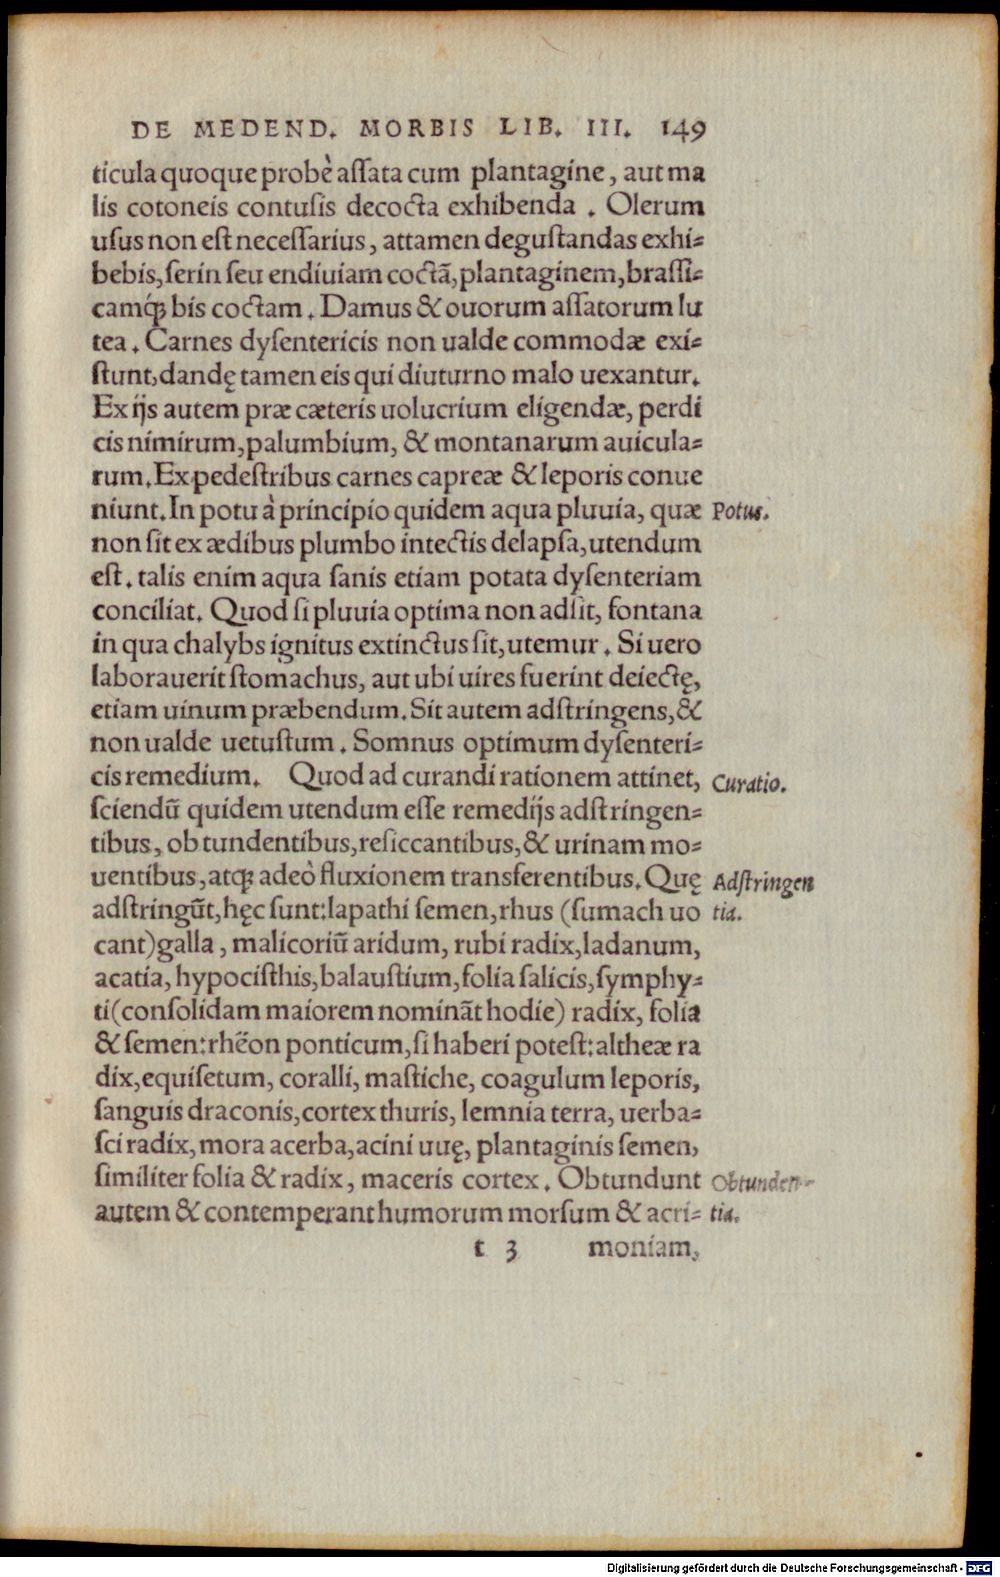 DE MEDEND. MORBIS LIB. III. 149
ticula quoque probè aſſata cum plantagine, aut ma
lis cotoneis contuſis decocta exhibenda. Olerum
uſus non eſt neceſſarius, attamen deguſtandas exhi-
bebis, ſerin ſeu endiuiam coctã, plantaginem, braſſi-
camq́ꝫ bis coctam. Damus & ouorum aſſatorum lu
tea. Carnes dyſentericis non ualde commodæ exi-
ſtunt, dandę tamen eis qui diuturno malo uexantur.
Ex ijs autem præ cæteris uolucrium eligendæ, perdi
cis nimirum, palumbium, & montanarum auicula-
rum. Ex pedeſtribus carnes capreæ & leporis conue
niunt. In potu à principio quidem aqua pluuia, quæ Potus.
non ſit ex ædibus plumbo intectis delapſa, utendum
eſt. talis enim aqua ſanis etiam potata dyſenteriam
conciliat. Quod ſi pluuia optima non adſit, fontana
in qua chalybs ignitus extinctus ſit, utemur. Si uero
laborauerit ſtomachus, aut ubi uires fuerint deiectę,
etiam uinum præbendum. Sit autem adſtringens, &
non ualde uetuſtum. Somnus optimum dyſenteri-
cis remedium. Quod ad curandi rationem attinet, Curatio.
ſciendũ quidem utendum eſſe remedijs adſtringen-
tibus, obtundentibus, reſiccantibus, & urinam mo-
uentibus, atqꝫ adeò fluxionem transferentibus. Quę Adſtringen
adſtringũt, hęc ſunt: lapathi ſemen, rhus (ſumach uo tia.
cant) galla, malicoriũ aridum, rubi radix, ladanum,
acatia, hypociſthis, balauſtium, folia ſalicis, ſymphy-
ti (conſolidam maiorem nominãt hodie) radix, folia
& ſemen: rhëon ponticum, ſi haberi poteſt: altheæ ra
dix, equiſetum, coralli, maſtiche, coagulum leporis,
ſanguis draconis, cortex thuris, lemnia terra, uerba-
ſci radix, mora acerba, acini uuę, plantaginis ſemen,
ſimiliter folia & radix, maceris cortex. Obtundunt Obtunden-
autem & contemperant humorum morſum & acri- tia.
t 3 moniam,
Digitalisierung gefördert durch die Deutsche Forschungsgemeinschaft - DFG